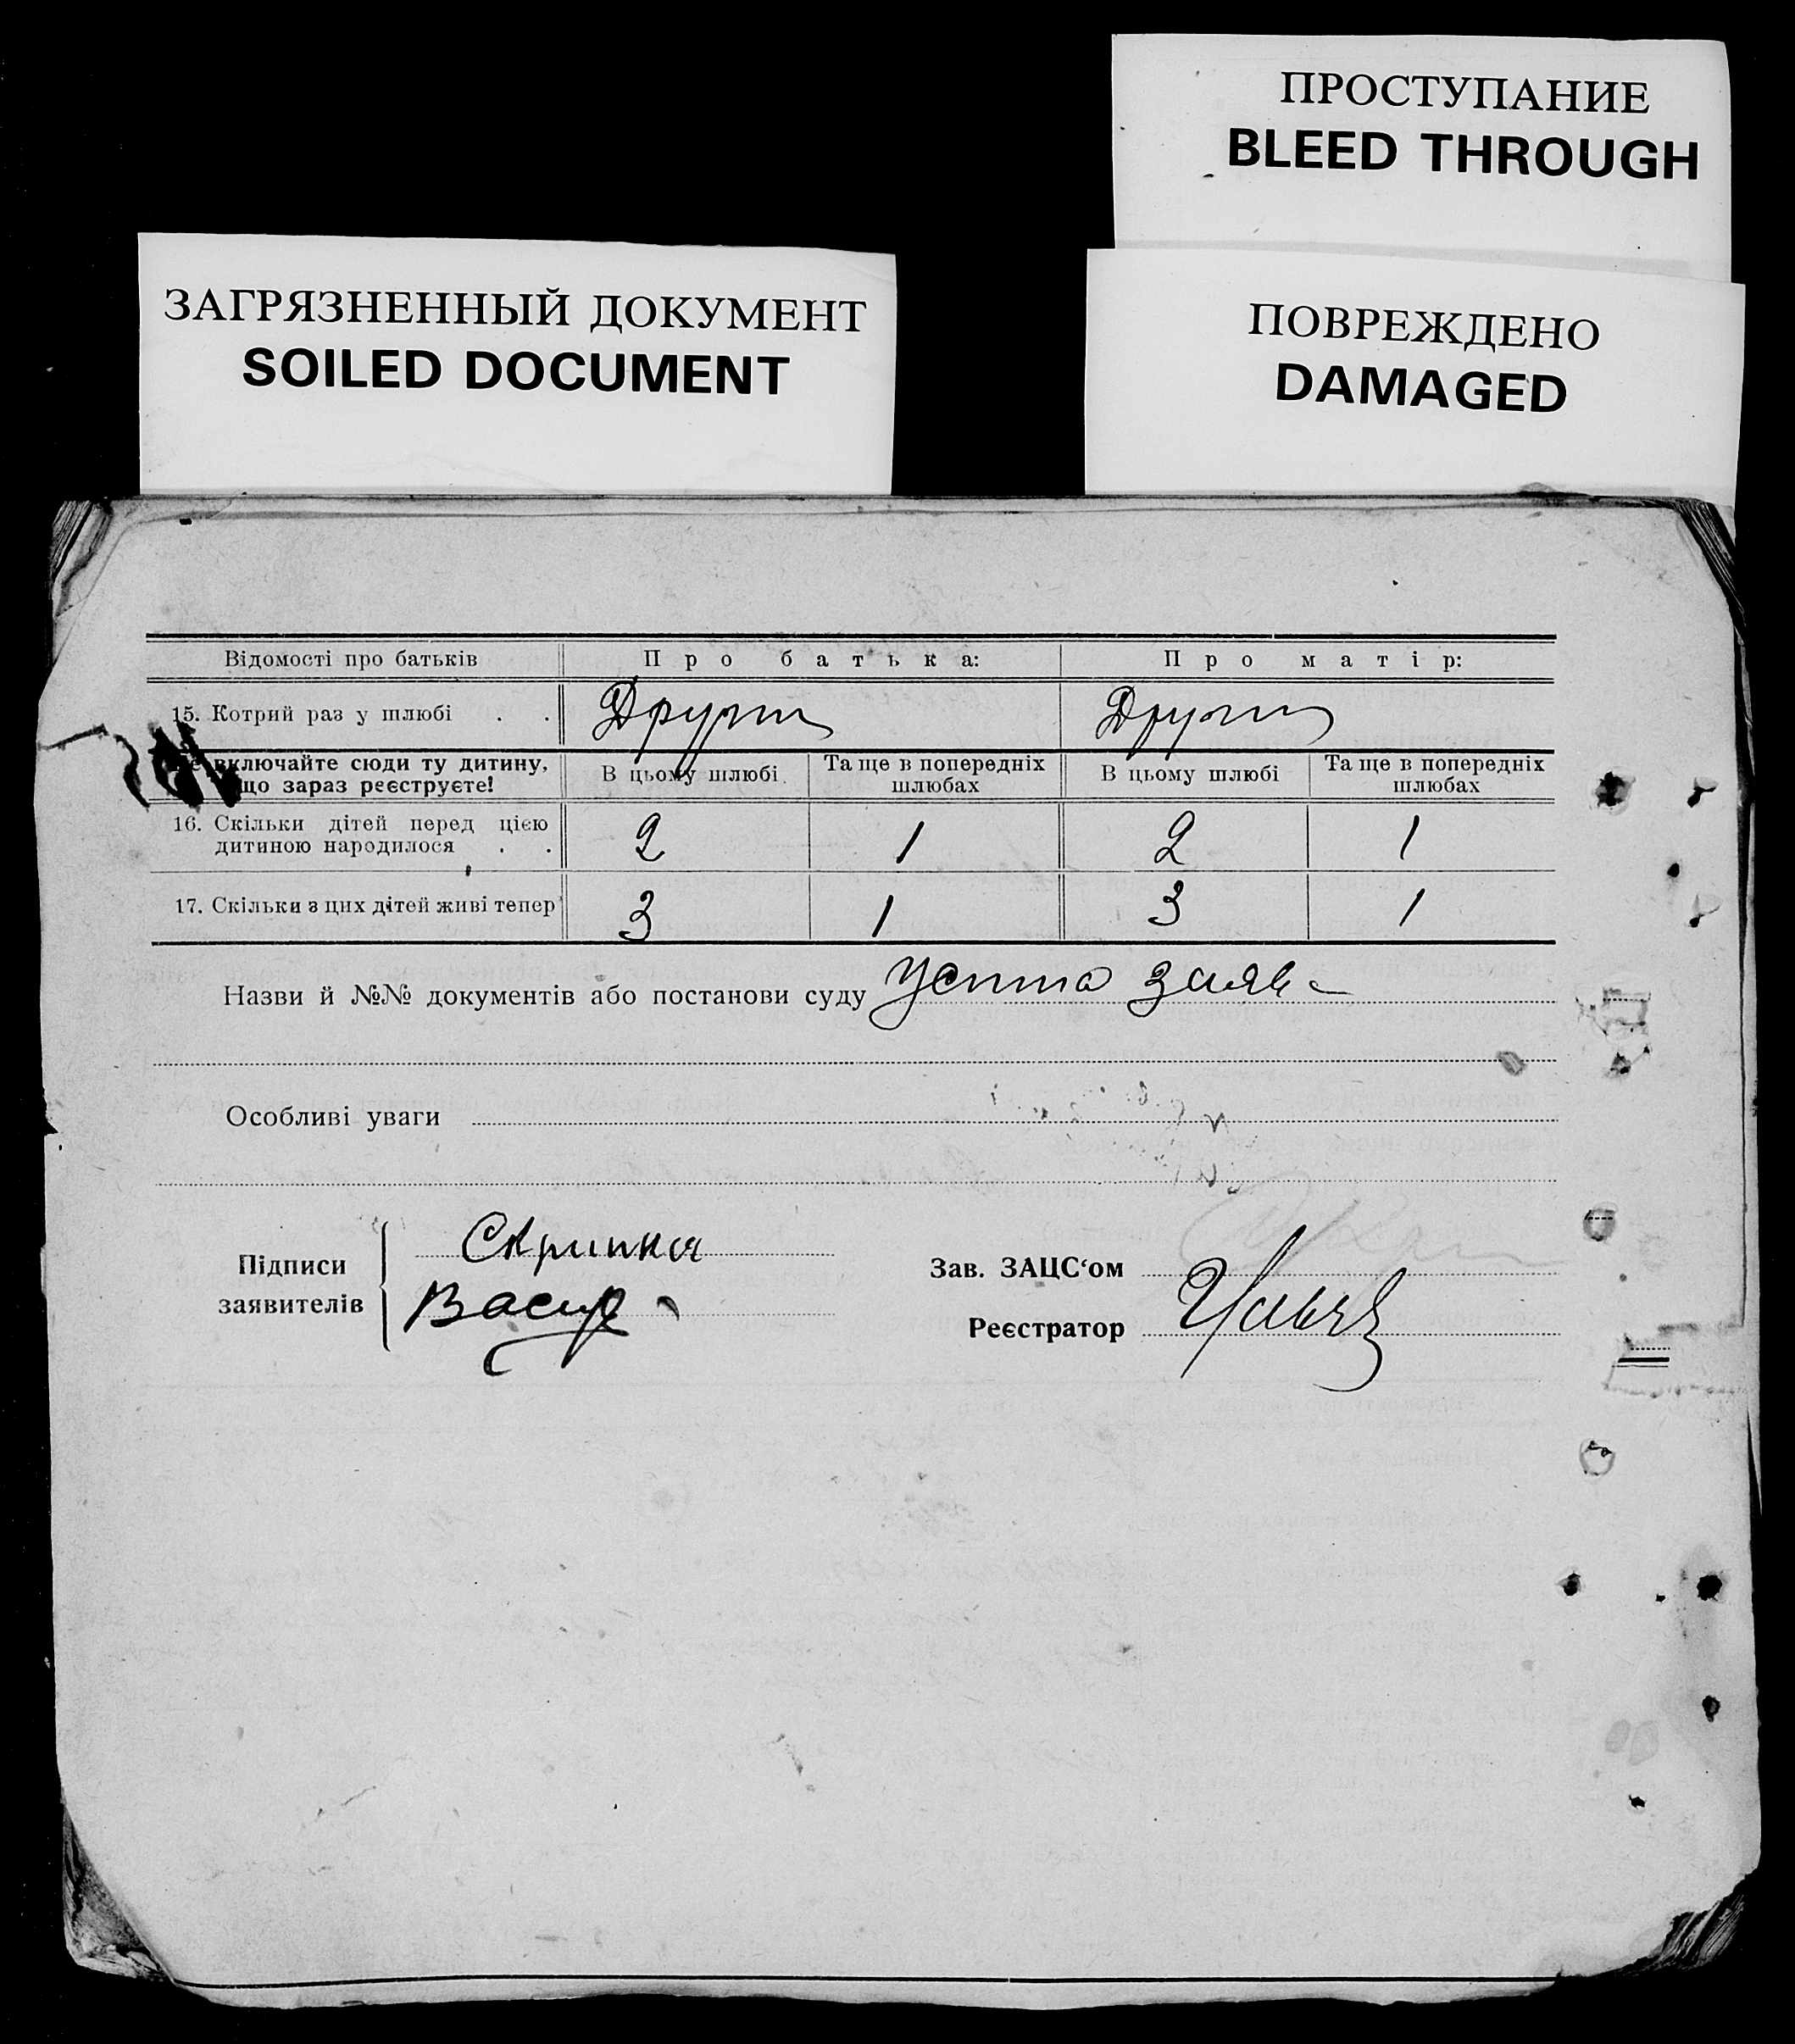 ПРОСТУПАНИЕ
BLEED THROUGH
ЗАГРЯЗНЕННЫЙ ДОКУМЕНТ
SOILED DOCUMENT
ПОВРЕЖДЕНО
DAMAGED
Відомості про батьків Про батька: Про матір:
15. Котрий раз у шлюбі . . Други Други
включайте сюди ту дитину, що зараз реєструєте! В цьому шлюбі Та ще в попередніх шлюбах В цьому шлюбі Та ще в попередніх шлюбах
16. Скільки дітей перед цією дитиною народилося . . 2 1 2 1
17. Скільки з цих дітей живі тепер 3 1 3 1
Назви й №№ документів або постанови суду Устна заява
Особливі уваги
Підписи заявителів Скрипка
Зав. ЗАЦС‘ом
Реєстратор